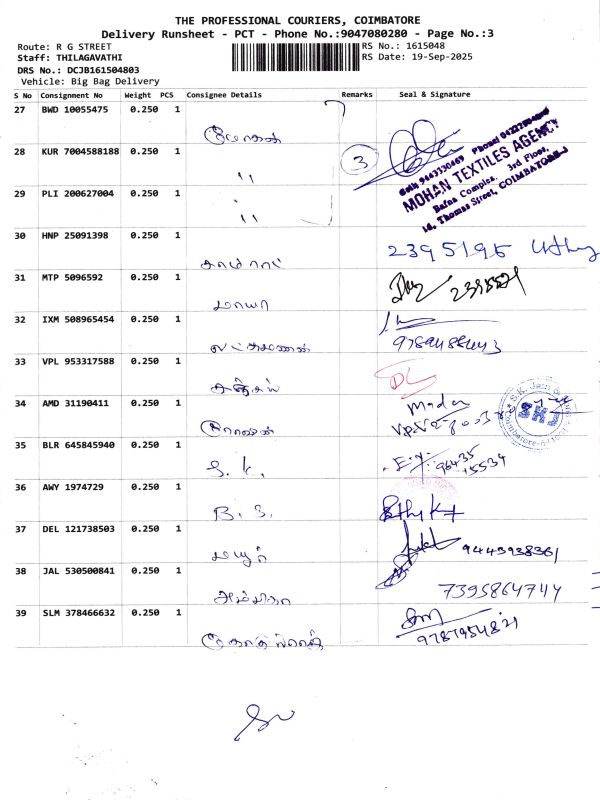 THE PROFESSIONAL COURIERS, COIMBATORE
Delivery Runsheet - PCT - Phone No.:9047080280 - Page No.:3
Route: R G STREET
RS No.: 1615048
Staff: THILAGAVATHI
RS Date: 19-Sep-2025
DRS No.: DCJB161504803
Vehicle: Big Bag Delivery
S No Consignment No Weight PCS Consignee Details Remarks Seal & Signature
27 BWD 10055475 0.250 1
மோகன்
28 KUR 7004588188 0.250 1
" 3
MOHAN TEXTILES AGENCY
Bafna Complex, 3rd Floor,
Thomas Street, COIMBATORE-1
29 PLI 200627004 0.250 1
"
30 HNP 25091398 0.250 1
காமராட் 2395195
31 MTP 5096592 0.250 1
மாயா
32 IXM 508965454 0.250 1
லட்சுமணன்
33 VPL 953317588 0.250 1
சஞ்சய்
34 AMD 31190411 0.250 1
Madan
35 BLR 645845940 0.250 1
S. K. 96435 15534
36 AWY 1974729 0.250 1
B. S.
37 DEL 121738503 0.250 1
மயூர் 9443938361
38 JAL 530500841 0.250 1
அம்பிகா 7395864744
39 SLM 378466632 0.250 1
9787954821
SKJ